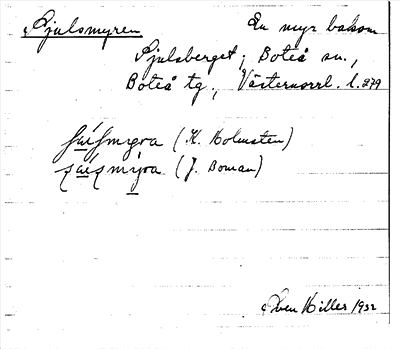 Själsmyren En myr bakom
Själsberget, Boteå sn.,
Boteå tg., Västernorrl. l. 279
(K. Holmsten)
(J. Boman)
Sven Hiller 1932